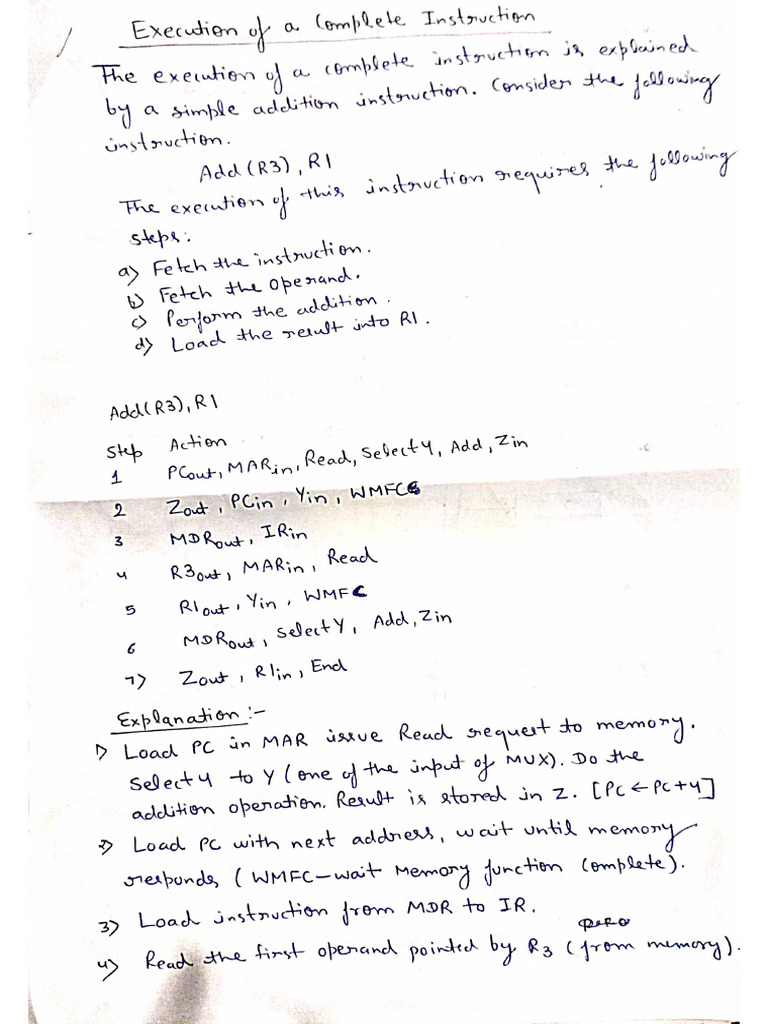 Execution of a Complete Instruction
The execution of a complete instruction is explained
by a simple addition instruction. Consider the following
instruction.
Add (R3), R1
The execution of this instruction requires the following
steps:
a) Fetch the instruction.
b) Fetch the operand.
c) Perform the addition.
d) Load the result into R1.
Add(R3), R1
Step Action
1 PCout, MARin, Read, Select4, Add, Zin
2 Zout, PCin, Yin, WMFC
3 MDRout, IRin
4 R3out, MARin, Read
5 R1out, Yin, WMFC
6 MDRout, SelectY, Add, Zin
7) Zout, R1in, End
Explanation :-
1) Load PC in MAR issue Read request to memory.
Select 4 to Y (one of the input of MUX). Do the
addition operation. Result is stored in Z. [PC ← PC+4]
2) Load PC with next address, wait until memory
responds (WMFC – wait Memory function Complete).
3) Load instruction from MDR to IR.
4) Read the first operand pointed by R3 (from memory).